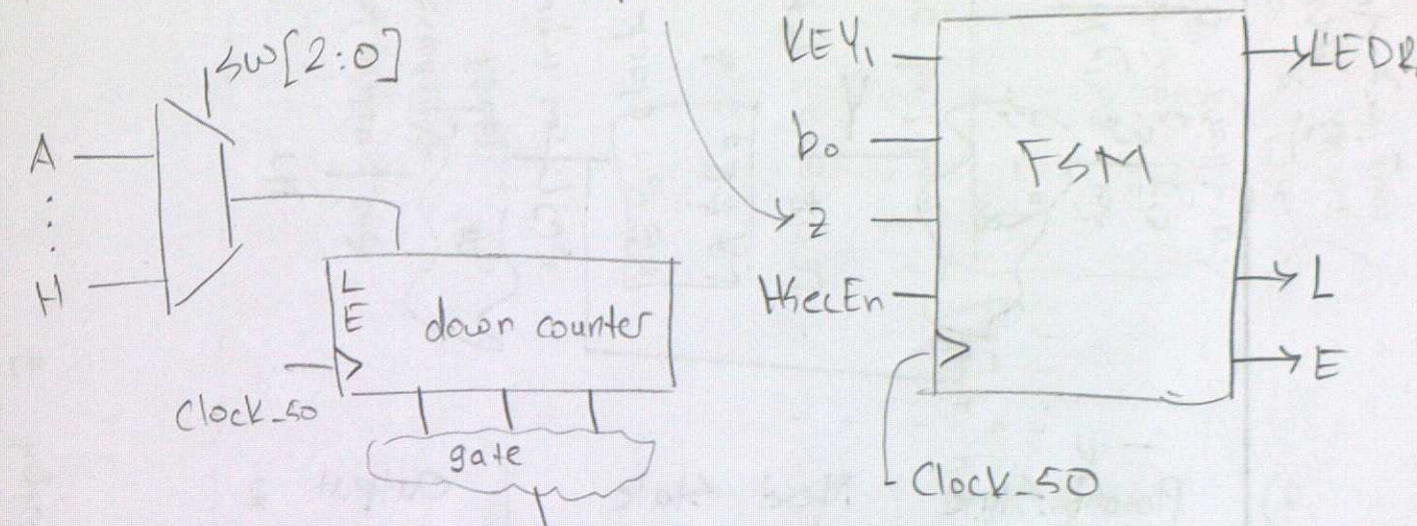 SW[2:0]
A
H
L
E
down counter
Clock_50
gate
KEY₁
b₀
z
HsecEn
FSM
LEDR
L
E
Clock_50